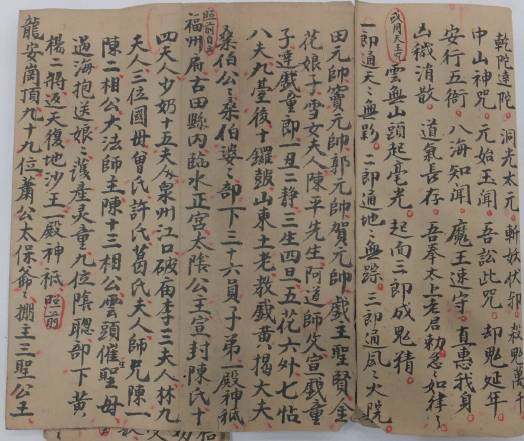 乾陀達陀　洞光太元　斬妖伏邪　殺鬼萬千
中山神咒　元始玉聞　吾誦此咒　却鬼延年
安行五衙　八海知聞　魔王速守　直惠我身
凶穢消散　道氣長存　吾奉太上老君勅急如律
咸月天主咒　雲無山頭起毫光　起面三郎成鬼猜
一郎通天無影　二郎通地無踪　三郎通風火院
田元帥竇元帥郭元帥賀元帥戲王聖賢金
花娘子雪女夫人陳平先生阿道師父宣戲童
子連戲童郎一旦二静三生四旦五花六外七帖
八夫九基後十鑼鼓山東土老教戲黃揭大夫
桑伯公桑伯婆部下三十六員子弟一殿神祗
照前白
福州府古田縣內臨水正宮太陰公主宣封陳氏十
四夫人少奶十五夫人泉州江口破庙李三夫人林九
夫人三位國母曾氏許氏葛氏夫人師咒陳一
陳二相公大法師主陳十三相公雲頭催聖母
過海抱送娘護產灵童九位陰聰部下黃
楊二將迈天復地沙王一殿神祗照前
龍安崗頂九十九位蕭公太保爺棚主三聖公主